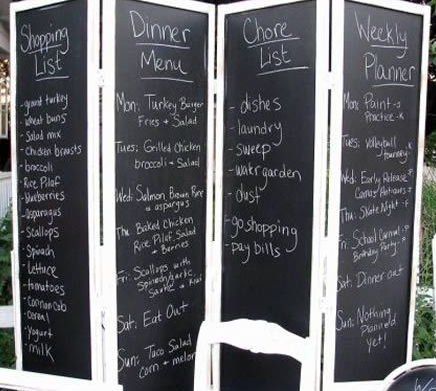 Shopping
List
- ground turkey
- wheat buns
- salad mix
- chicken breasts
- broccoli
- Rice Pilaf
- blueberries
- Asparagus
- Scallops
- Spinach
- Lettuce
- tomatoes
- corn on cob
- cereal
- yogurt
- milk
Dinner
Menu
Mon: Turkey Burger
Fries + Salad
Tues: Grilled Chicken
broccoli + Salad
Wed: Salmon, Brown Rice
+ asparagus
Thu: Baked Chicken
Rice Pilaf, Salad
+ Berries
Fri: Scallops with
Spinach/garlic
Sat: Eat Out
Sun: Taco Salad
corn + melon
Chore
List
- dishes
- laundry
- sweep
- water garden
- dust
- go shopping
- pay bills
Weekly
Planner
Mon: Paint -s
Practice -K
Tues: Volleyball
Wed: Early Release
Thu: Skate Night
Fri: School Carnival
Birthday Party
Sat: Dinner out
Sun: Nothing
Planned
yet!